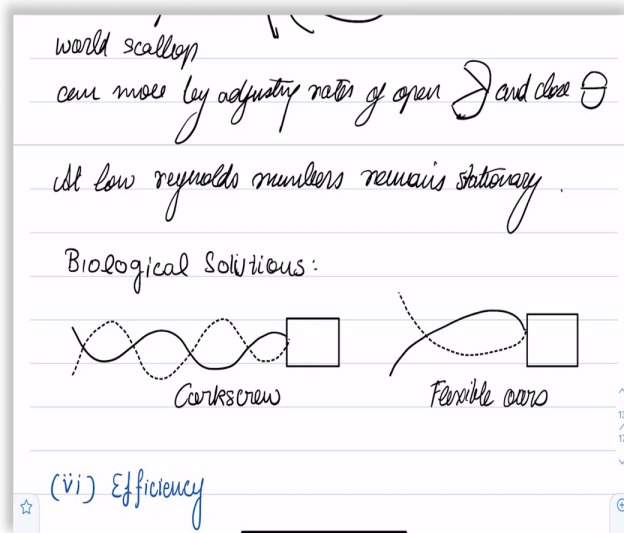 world scallop
can move by adjusting rates of open and close
At low reynolds numbers remains stationary.
Biological Solutions:
Corkscrew Flexible oars
(vi) Efficiency